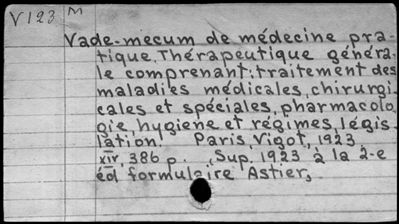 V123 M
Vade-mecum de médecine pra-
tique. Thérapeutique généra-
le comprenant: traitement des
maladies médicales, chirurgi-
cales et spéciales, pharmacolo-
gie, hygiene et régimes, légis-
lation. Paris, Vigot, 1923.
xiv, 386 p. Sup. 1923 à la 2-e
éd formulaire Astier,